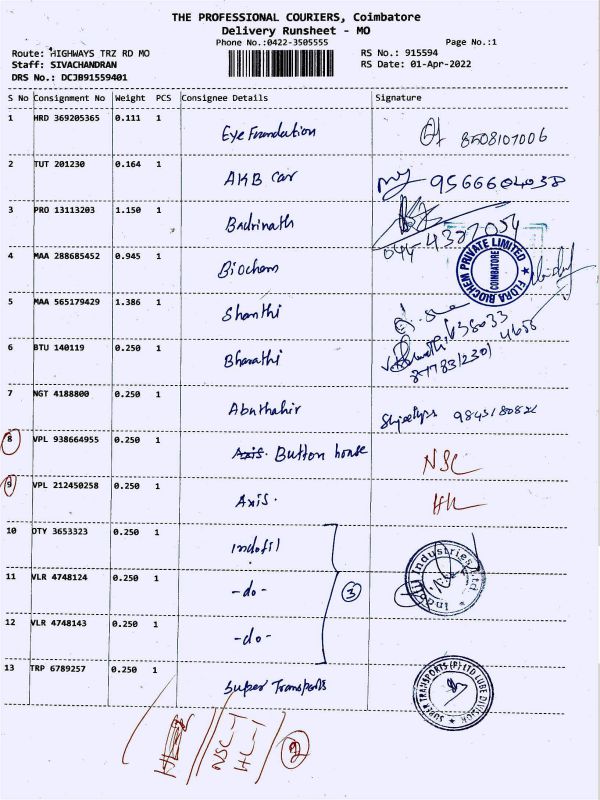 THE PROFESSIONAL COURIERS, Coimbatore
Delivery Runsheet - MO
Phone No.:0422-3505555
Page No.:1
Route: HIGHWAYS TRZ RD MO
RS No.: 915594
Staff: SIVACHANDRAN
RS Date: 01-Apr-2022
DRS No.: DCJB91559401
S No Consignment No Weight PCS Consignee Details Signature
1 HRD 369205365 0.111 1 Eye Foundation 8508107006
2 TUT 201230 0.164 1 AKB car 9566604038
3 PRO 13113203 1.150 1 Badrinath 044-4382054
4 MAA 288685452 0.945 1 Biochem
FLORA BIOCHEM PRIVATE LIMITED ★ COIMBATORE
5 MAA 565179429 1.386 1 Shanthi
6 BTU 140119 0.250 1 Bharathi
7 NGT 4188800 0.250 1 Abuthahir
8 VPL 938664955 0.250 1 Axis. Button house NSC
9 VPL 212450258 0.250 1 Axis. HL
10 DTY 3653323 0.250 1 indofil
11 VLR 4748124 0.250 1 -do- 3
Industries Ltd
12 VLR 4748143 0.250 1 -do-
13 TRP 6789257 0.250 1 Super Transports
SUPER TRANSPORTS (P) LTD LUBE DIVISION ★
NSC-1
HL-1
2